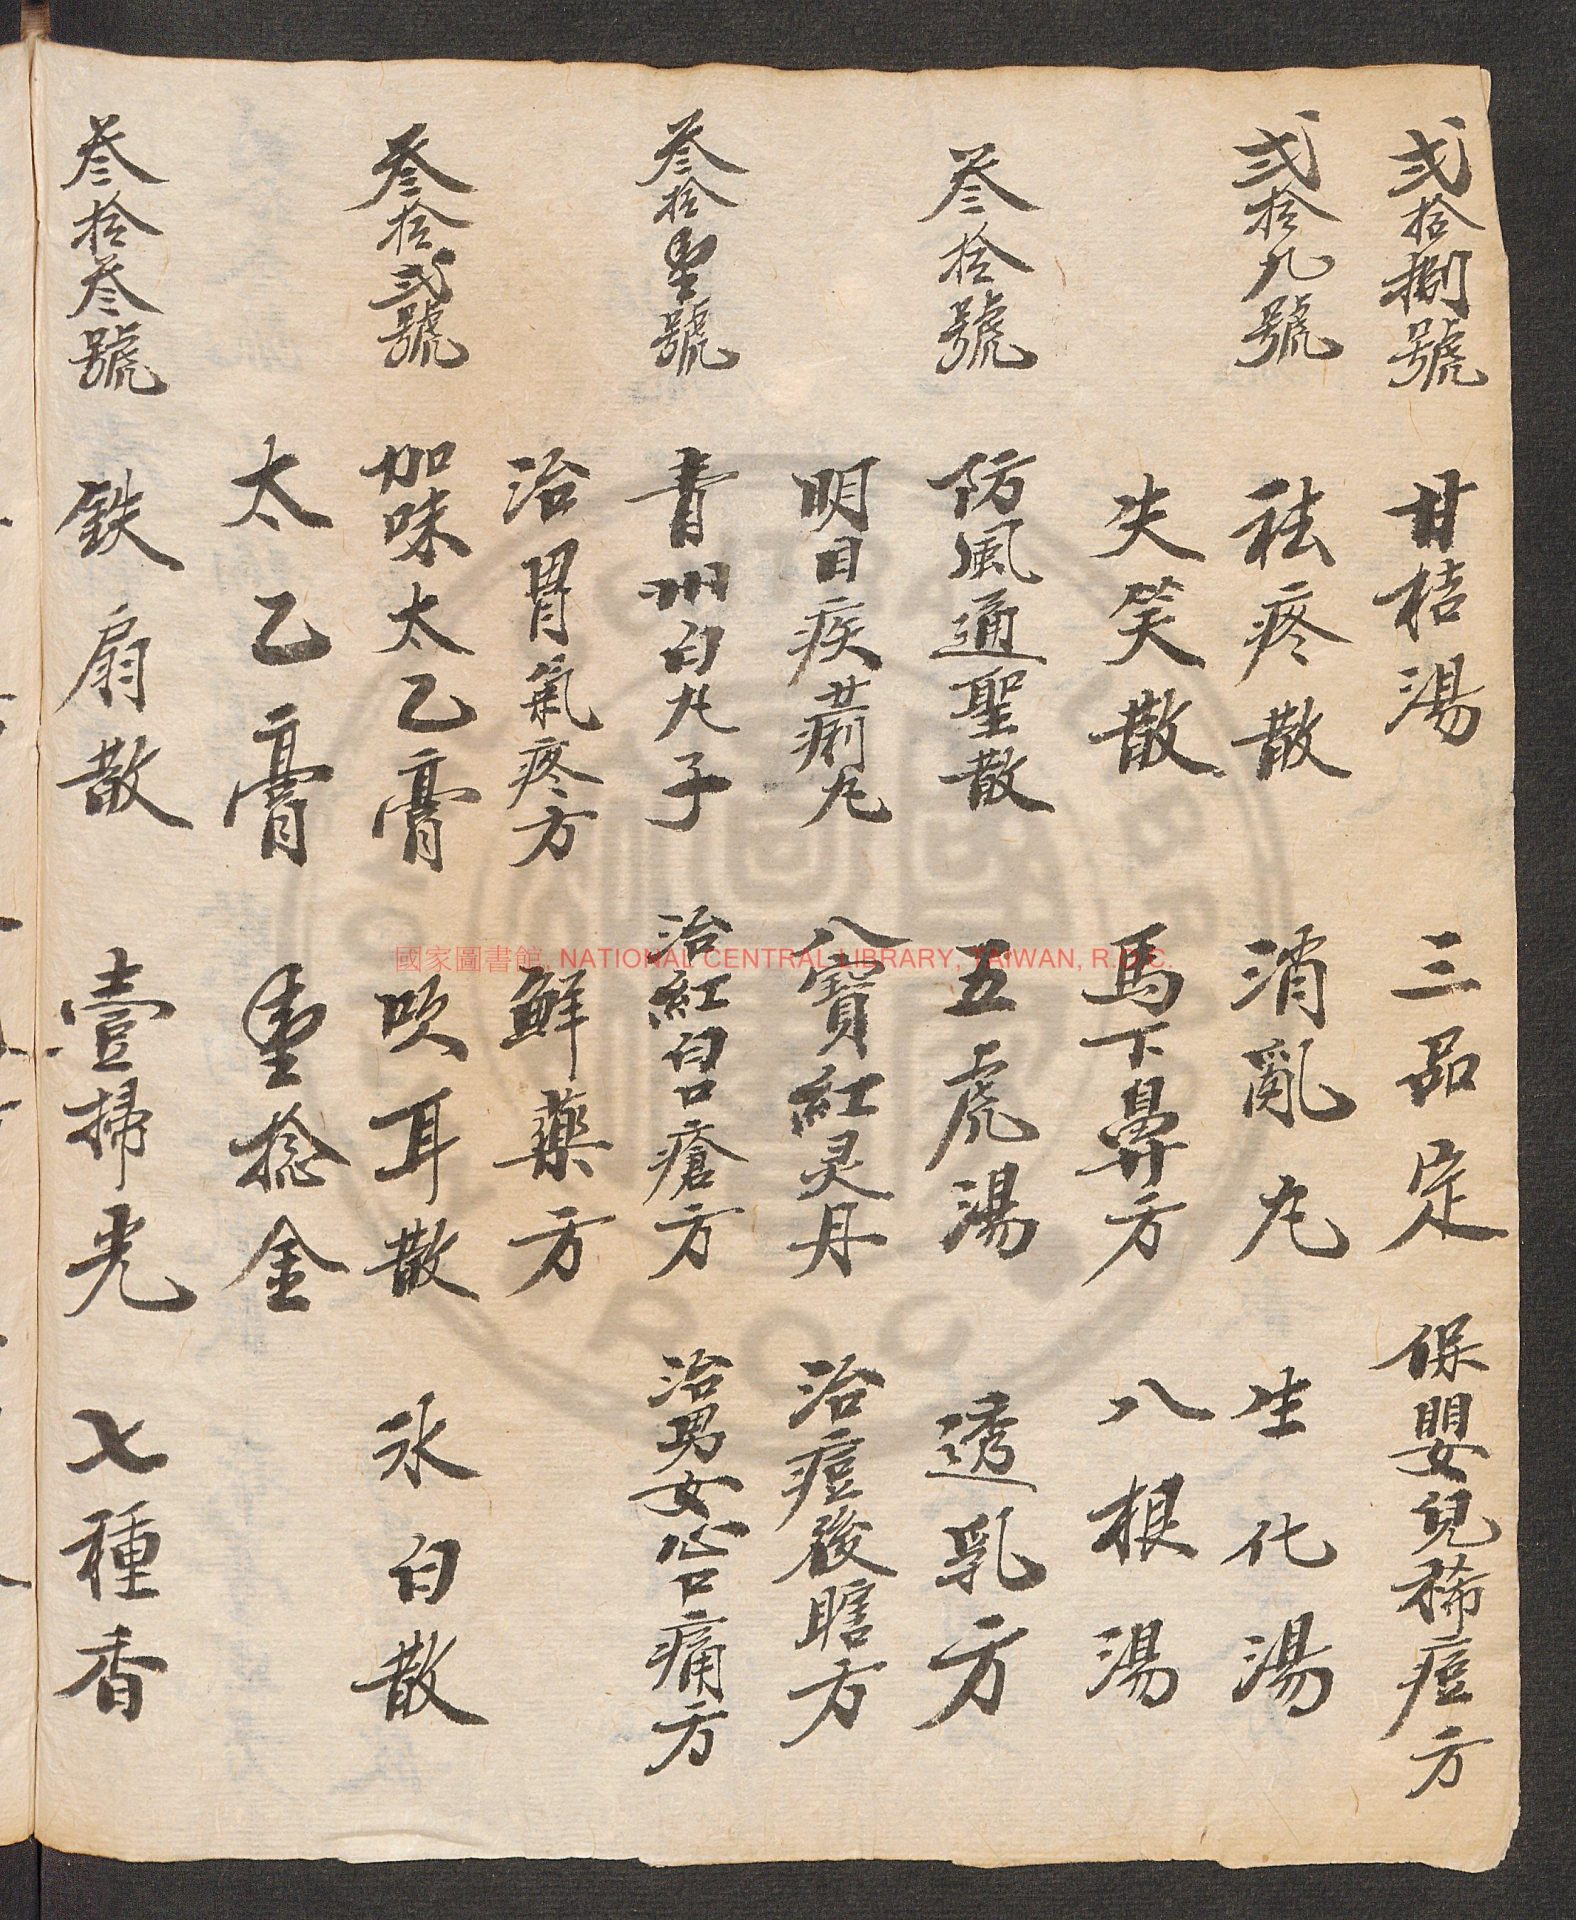 貳拾捌號 甘桔湯 三品定 保嬰兒稀痘方
貳拾九號 祛疼散 消亂丸 生化湯
失笑散 馬下鼻方 八根湯
叁拾號 防風通聖散 五虎湯 透乳方
明目疾丸 八寶紅灵丹 治痘後瞎方
叁拾壹號 青州白丸子 治紅白口瘡方 治男女心口痛方
治胃氣疼方 鮮藥方
叁拾貳號 加味太乙膏 吹耳散 氷白散
太乙膏 壹捻金
叁拾叁號 鉄扇散 壹掃光 七種香
國家圖書館, NATIONAL CENTRAL LIBRARY, TAIWAN, R.O.C.